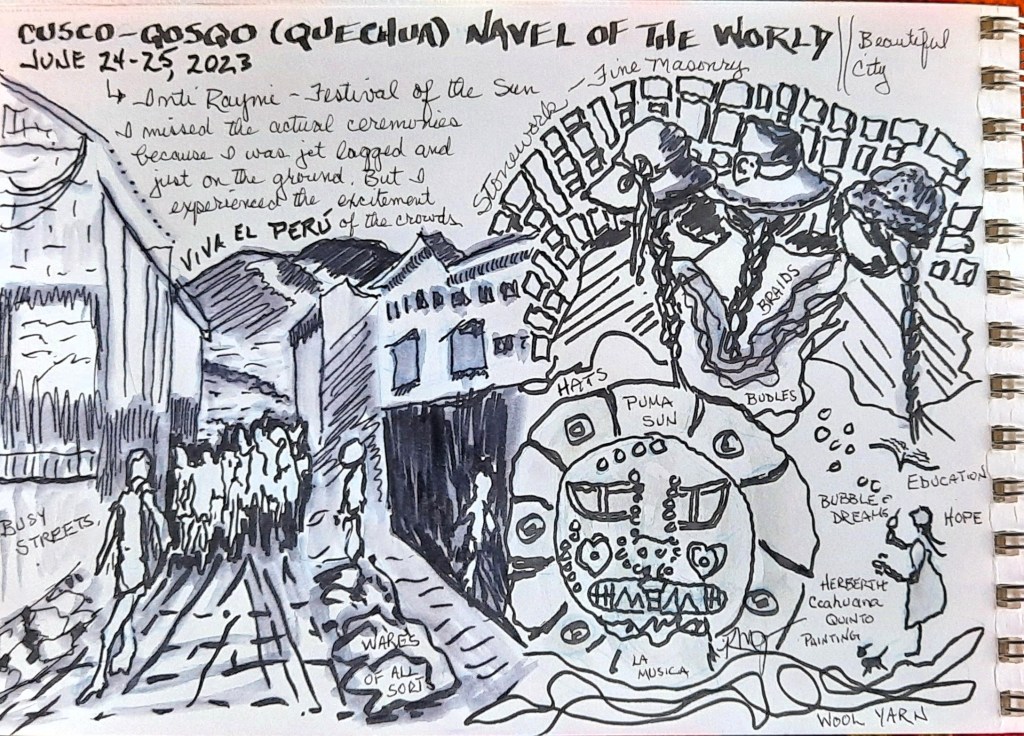 CUSCO-QOSQO (QUECHUA) NAVEL OF THE WORLD
Beautiful
City
JUNE 24-25, 2023
Inti Raymi - Festival of the Sun
I missed the actual ceremonies
because I was jet lagged and
just on the ground. But I
experienced the excitement
of the crowds
VIVA EL PERÚ
Stonework - Fine Masonry
BRAIDS
HATS
PUMA
SUN
BUDLES
EDUCATION
BUBBLES
DREAMS
HOPE
BUSY
STREETS,
HERBERTH
Ccahuana
QUINTO
PAINTING
WARES
OF ALL
SORT
LA
MUSICA
WOOL YARN